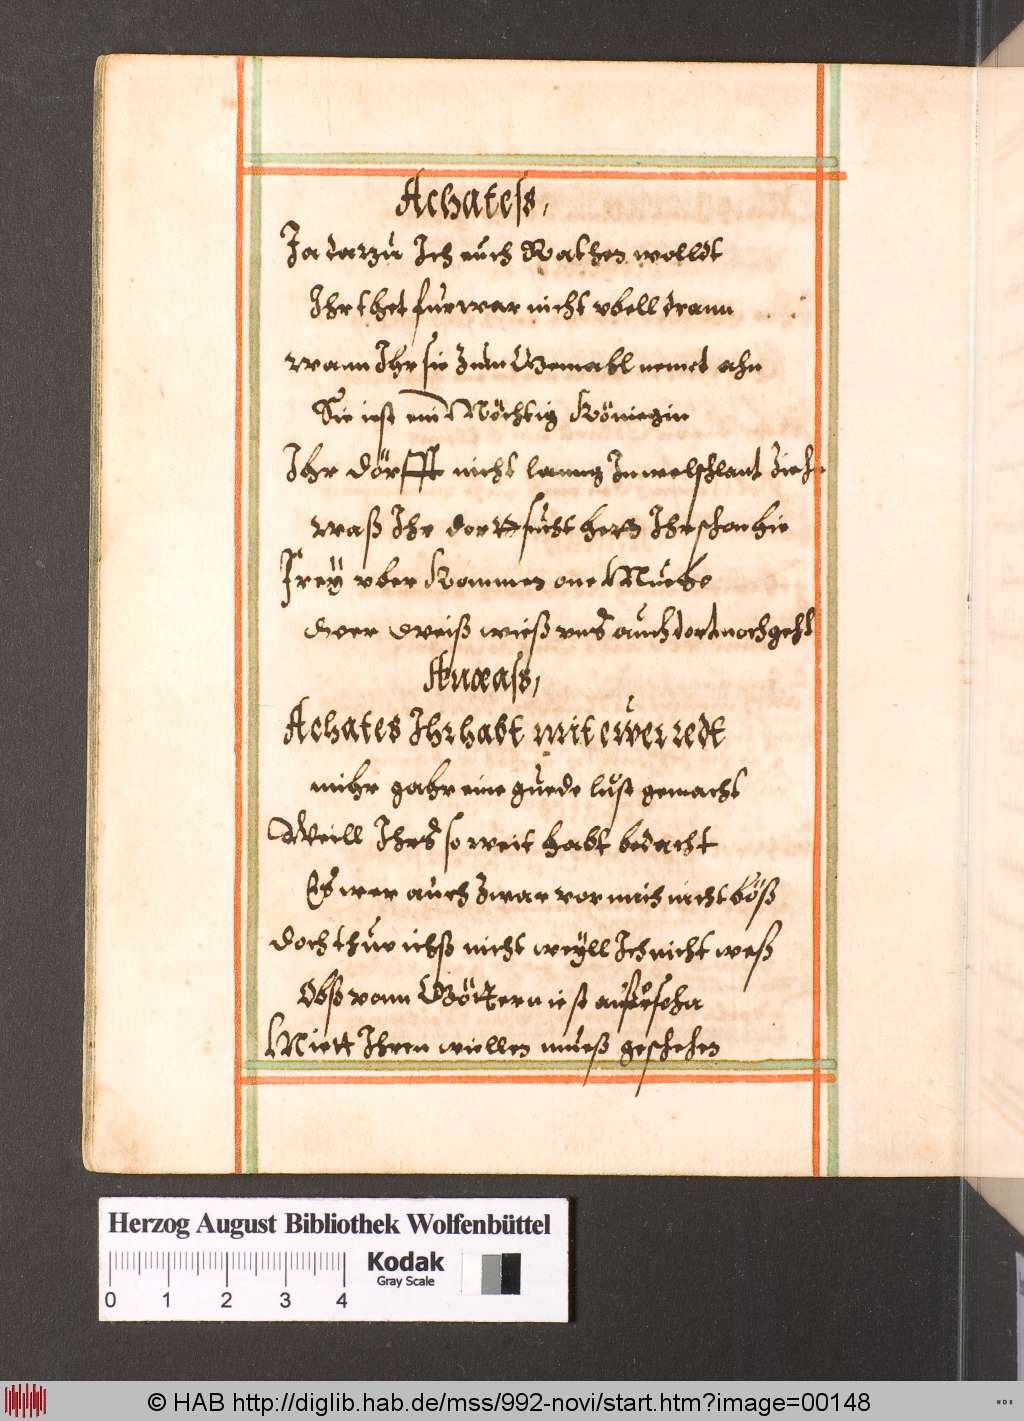 Achatess,
Ja darzu Ich euch Rathen wolldt
Ihr thet furwar nicht vbell drann
wann Ihr sie zum Gemahl nemet ahn
Sie iest ein Möchtig Köniegin
Ihr dörfft nicht lanng In welschlant Ziehn
waß Ihr dort sucht hett Ihr schon hie
Frey vber Kommen one Muehe
wer weiß wieß vns auch dort noch geht
Anæass,
Achates Ihr habt mit ewer redt
mihr gahr eine guede lust gemacht
Weill Ihrs so weit habt bedacht
Es wer auch zwar vor mich nicht böß
doch thue ichß nicht weyll Ich nicht weß
Obß vonn Göttern iest außersehn
Miett Ihren wiellen mueß geschehen
Herzog August Bibliothek Wolfenbüttel
Kodak
Gray Scale
0 1 2 3 4
© HAB http://diglib.hab.de/mss/992-novi/start.htm?image=00148